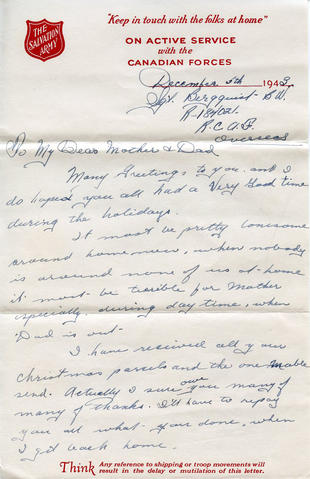 "Keep in touch with the folks at home"
THE
SALVATION
ARMY
ON ACTIVE SERVICE
with the
CANADIAN FORCES
December 5th 1943.
Sgt. Bergquist B.W.
R.C.A.F.
Overseas
To My Dear Mother & Dad
Many Greetings to you and I
do hoped you all had a Very Good time
during the holidays.
It must be pretty lonesome
around home now, when nobody
is around none of us at home
it must be terrible for Mother
especially during day time, when
Dad is out.
I have received all your
Christmas parcels and the one Mable
send. Actually I sure owe you many of
many of thanks. I'll have to repay
you all what you done, when
I get back home.
Think Any reference to shipping or troop movements will
result in the delay or mutilation of this letter.